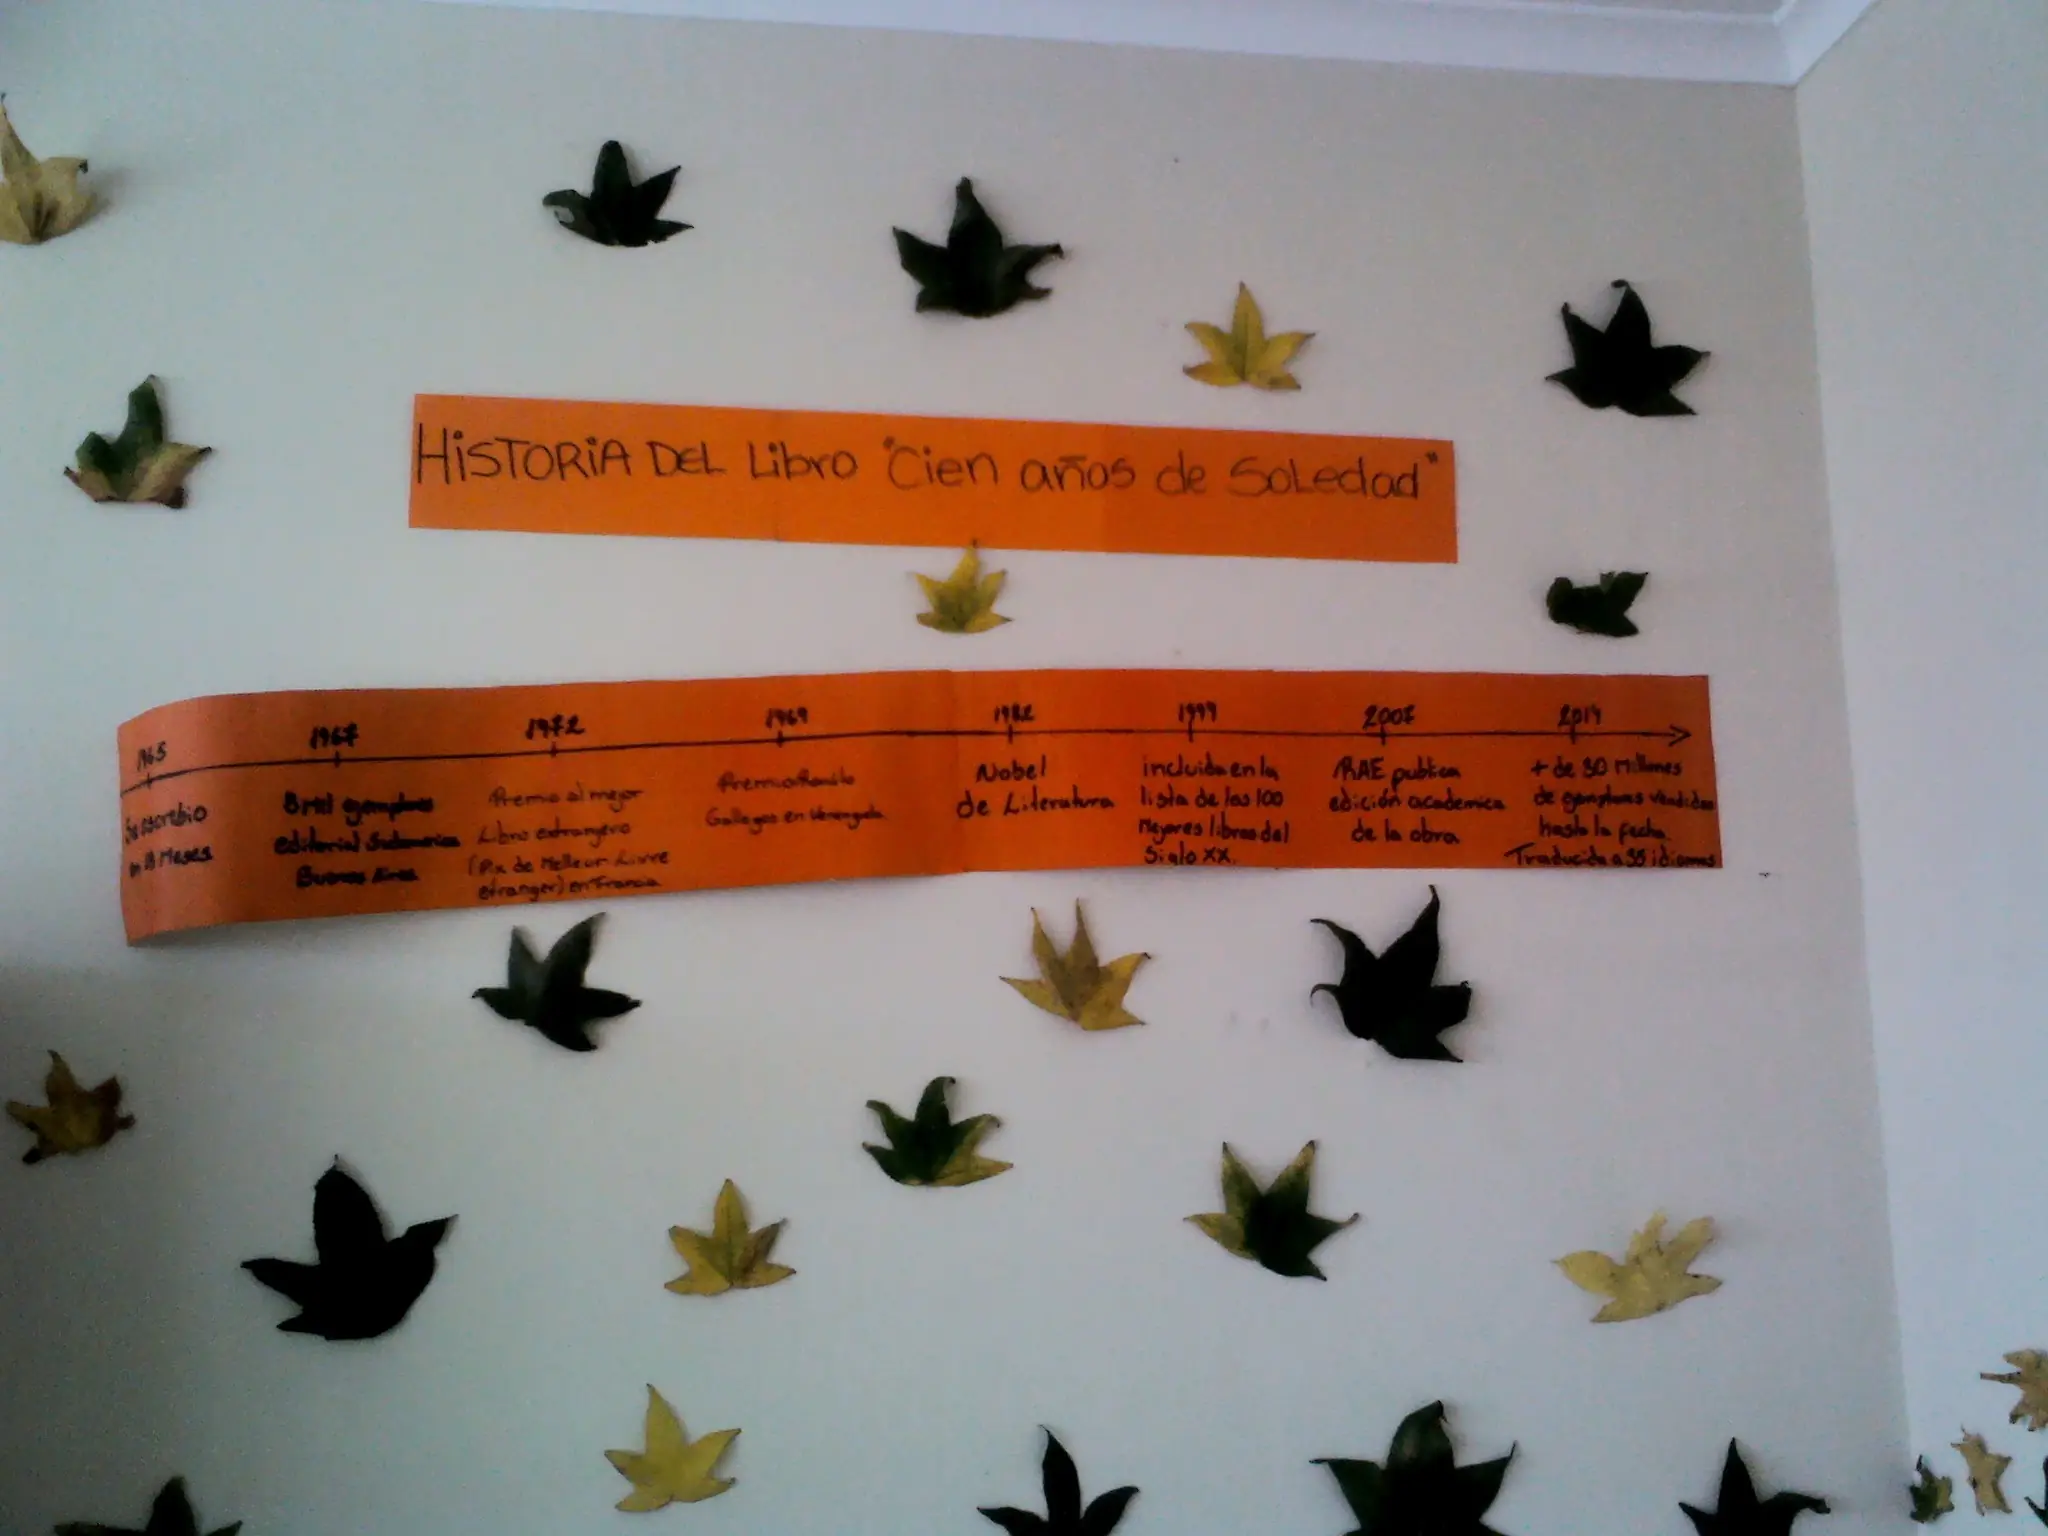 HISTORIA DEL Libro "Cien años de Soledad"
1965
Se escribio
en 18 Meses
1967
8 mil ejemplares
editorial Sudamerica
Buenos Aires
1972
Premio al mejor
Libro extrangero
(Pix de Melleur Livre
etranger) en Francia
1969
Premio Romulo
Gallegos en Venezuela
1982
Nobel
de Literatura
1999
incluida en la
lista de los 100
Mejores libros del
Siglo XX.
2007
RAE publica
edición academica
de la obra
2014
+ de 30 Millones
de ejemplares vendidos
hasta la fecha.
Traducida a 35 idiomas